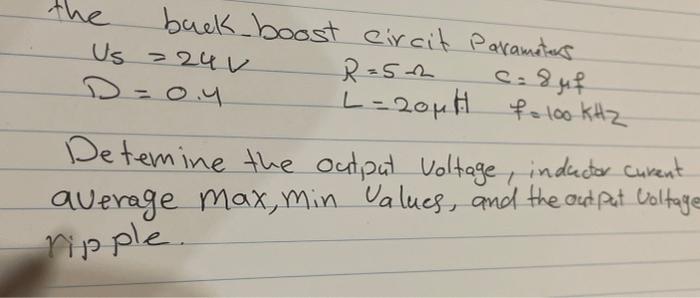 the buck-boost circit Parameters
Vs = 24V R = 5Ω C = 8μf
D = 0.4 L = 20μH f = 100 KHZ
Detemine the output voltage, inductor curent
average max, min values, and the output voltage
ripple.